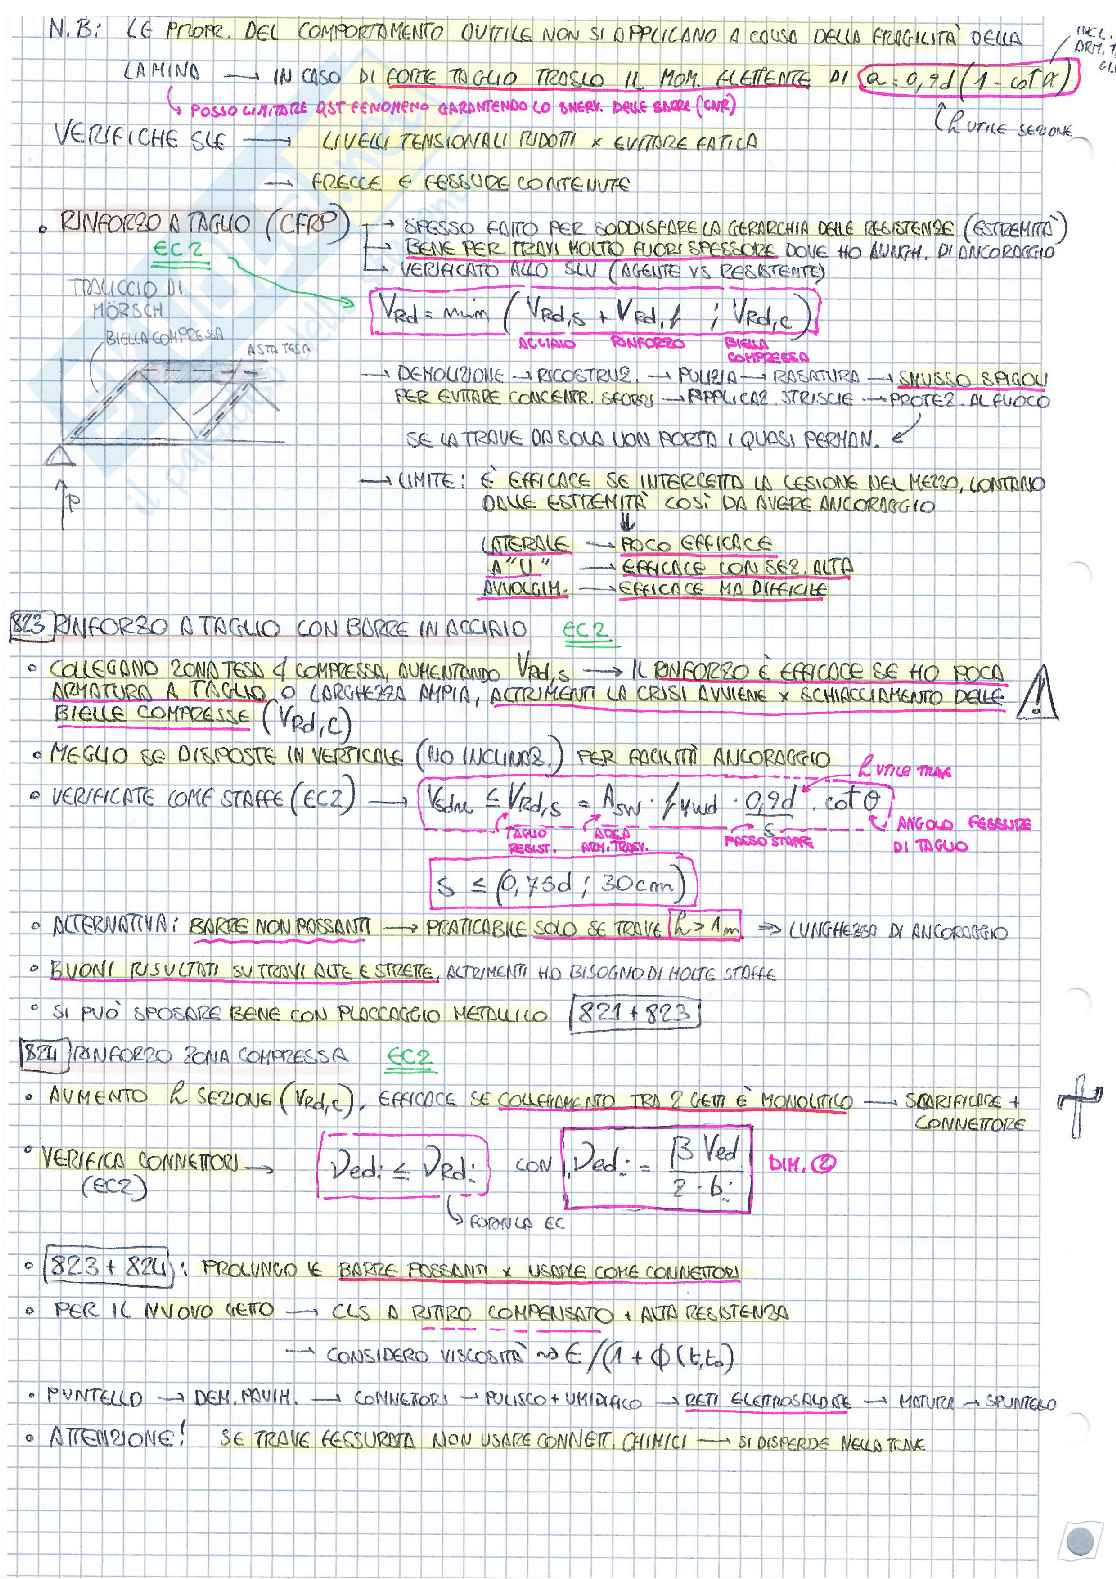 N.B: LE PROPR. DEL COMPORTAMENTO DUTTILE NON SI APPLICANO A CAUSA DELLA FRAGILITÀ DELLA
LAMINA → IN CASO DI FORTE TAGLIO TRASLO IL MOM. FLETTENTE DI a = 0,9d (1 - cot α)
INCL.
ARM. T
↳ POSSO LIMITARE QST FENOMENO GARANTENDO LO SNERV. DELLE BARRE (CNR)
h UTILE SEZIONE
VERIFICHE SLE → LIVELLI TENSIONALI RIDOTTI x EVITARE FATICA
→ FRECCE E FESSURE CONTENUTE
• RINFORZO A TAGLIO (CFRP) → SPESSO FATTO PER SODDISFARE LA GERARCHIA DELLE RESISTENZE (ESTREMITÀ)
EC2 → BENE PER TRAVI MOLTO FUORI SPESSORE DOVE HO LUNGH. DI ANCORAGGIO
→ VERIFICATO ALLO SLU (AGENTE VS RESISTENTE)
TRALICCIO DI
MÖRSCH
BIELLA COMPRESSA
ASTA TESA
P
VRd = min (VRd,s + VRd,f ; VRd,c)
ACCIAIO RINFORZO BIELLA
COMPRESSA
→ DEMOLIZIONE → RICOSTRUZ. → PULIZIA → RASATURA → SMUSSO SPIGOLI
PER EVITARE CONCENTR. SFORZI → APPLICAZ. STRISCIE → PROTEZ. AL FUOCO
SE LA TRAVE DA SOLA NON PORTA I QUASI PERMAN. ↙
→ LIMITE: È EFFICACE SE INTERCETTA LA LESIONE NEL MEZZO, LONTANO
DALLE ESTREMITÀ COSÌ DA AVERE ANCORAGGIO
↓
LATERALE → POCO EFFICACE
A "U" → EFFICACE CON SEZ. ALTA
AVVOLGIM. → EFFICACE MA DIFFICILE
823 RINFORZO A TAGLIO CON BARRE IN ACCIAIO EC2
• COLLEGANO ZONA TESA & COMPRESSA, AUMENTANDO VRd,s → IL RINFORZO È EFFICACE SE HO POCA
ARMATURA A TAGLIO O LARGHEZZA AMPIA, ALTRIMENTI LA CRISI AVVIENE x SCHIACCIAMENTO DELLE
BIELLE COMPRESSE (VRd,c)
!
• MEGLIO SE DISPOSTE IN VERTICALE (NO INCLINAZ.) PER FACILITÀ ANCORAGGIO
h UTILE TRAVE
• VERIFICATE COME STAFFE (EC2) → VEdu ≤ VRd,s = Asw · fywd · 0,9d/s · cot θ
TAGLIO
RESIST.
AREA
ARM. TRASV.
PASSO STAFFE
ANGOLO FESSURE
DI TAGLIO
s ≤ (0,75d ; 30cm)
• ALTERNATIVA: BARRE NON PASSANTI → PRATICABILE SOLO SE TRAVE h > 1m ⇒ LUNGHEZZA DI ANCORAGGIO
• BUONI RISULTATI SU TRAVI ALTE E STRETTE, ALTRIMENTI HO BISOGNO DI MOLTE STAFFE
• SI PUÒ SPOSARE BENE CON PLACCAGGIO METALLICO 821 + 823
824 RINFORZO ZONA COMPRESSA EC2
• AUMENTO h SEZIONE (VRd,c), EFFICACE SE COLLEGAMENTO TRA 2 GETTI È MONOLITICO → SCARIFICARE +
CONNETTORE
• VERIFICA CONNETTORI →
(EC2)
νedi ≤ νRdi CON νedi = β Ved / z · bi DIM. ②
↳ FORMULA EC
• 823 + 824 : PROLUNGO LE BARRE PASSANTI x USARLE COME CONNETTORI
• PER IL NUOVO GETTO → CLS A RITIRO COMPENSATO + ALTA RESISTENZA
→ CONSIDERO VISCOSITÀ ⇝ E/(1 + ϕ(t,t₀)
• PUNTELLO → DEM. PAVIM. → CONNETTORI → PULISCO + UMIDIFICO → RETI ELETTROSALDATE → MATURA → SPUNTELLO
• ATTENZIONE! SE TRAVE FESSURATA NON USARE CONNETT. CHIMICI → SI DISPERDE NELLA TRAVE